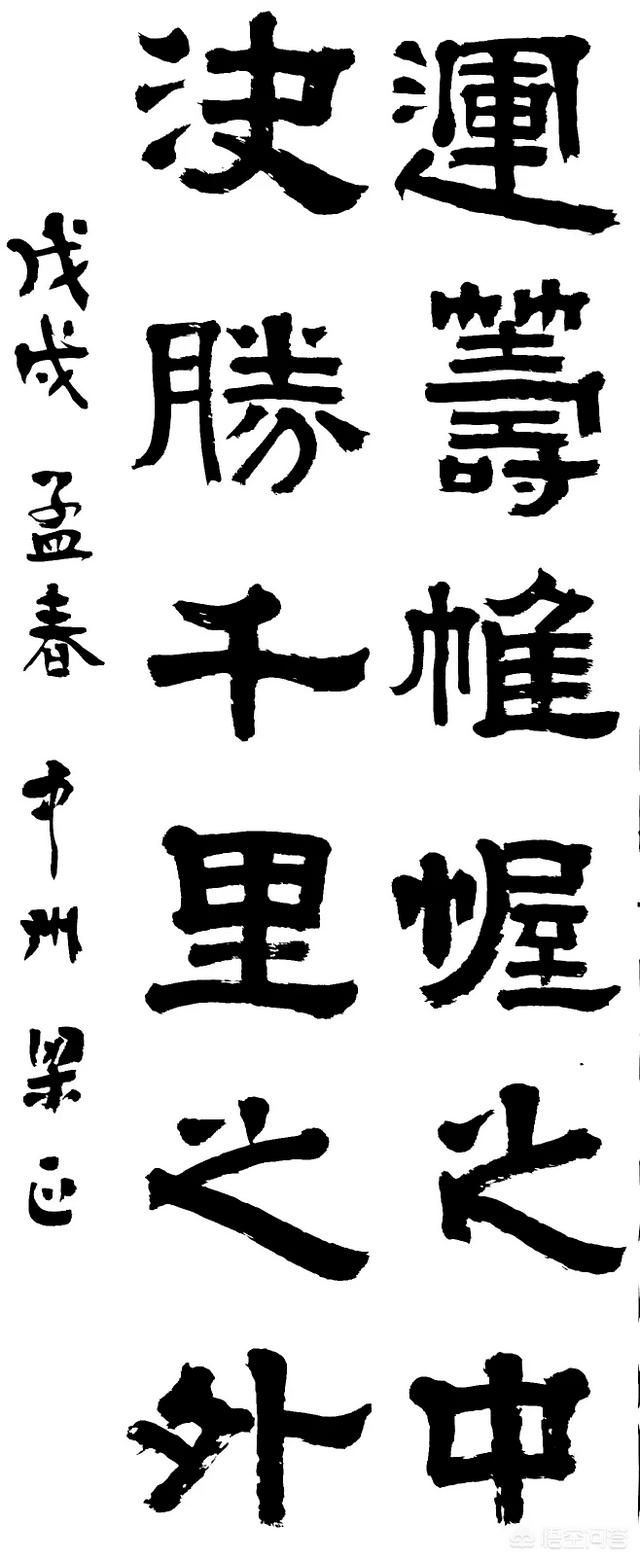 運籌帷幄之中
決勝千里之外
戊戌 孟春 中州 梁正
悟空问答